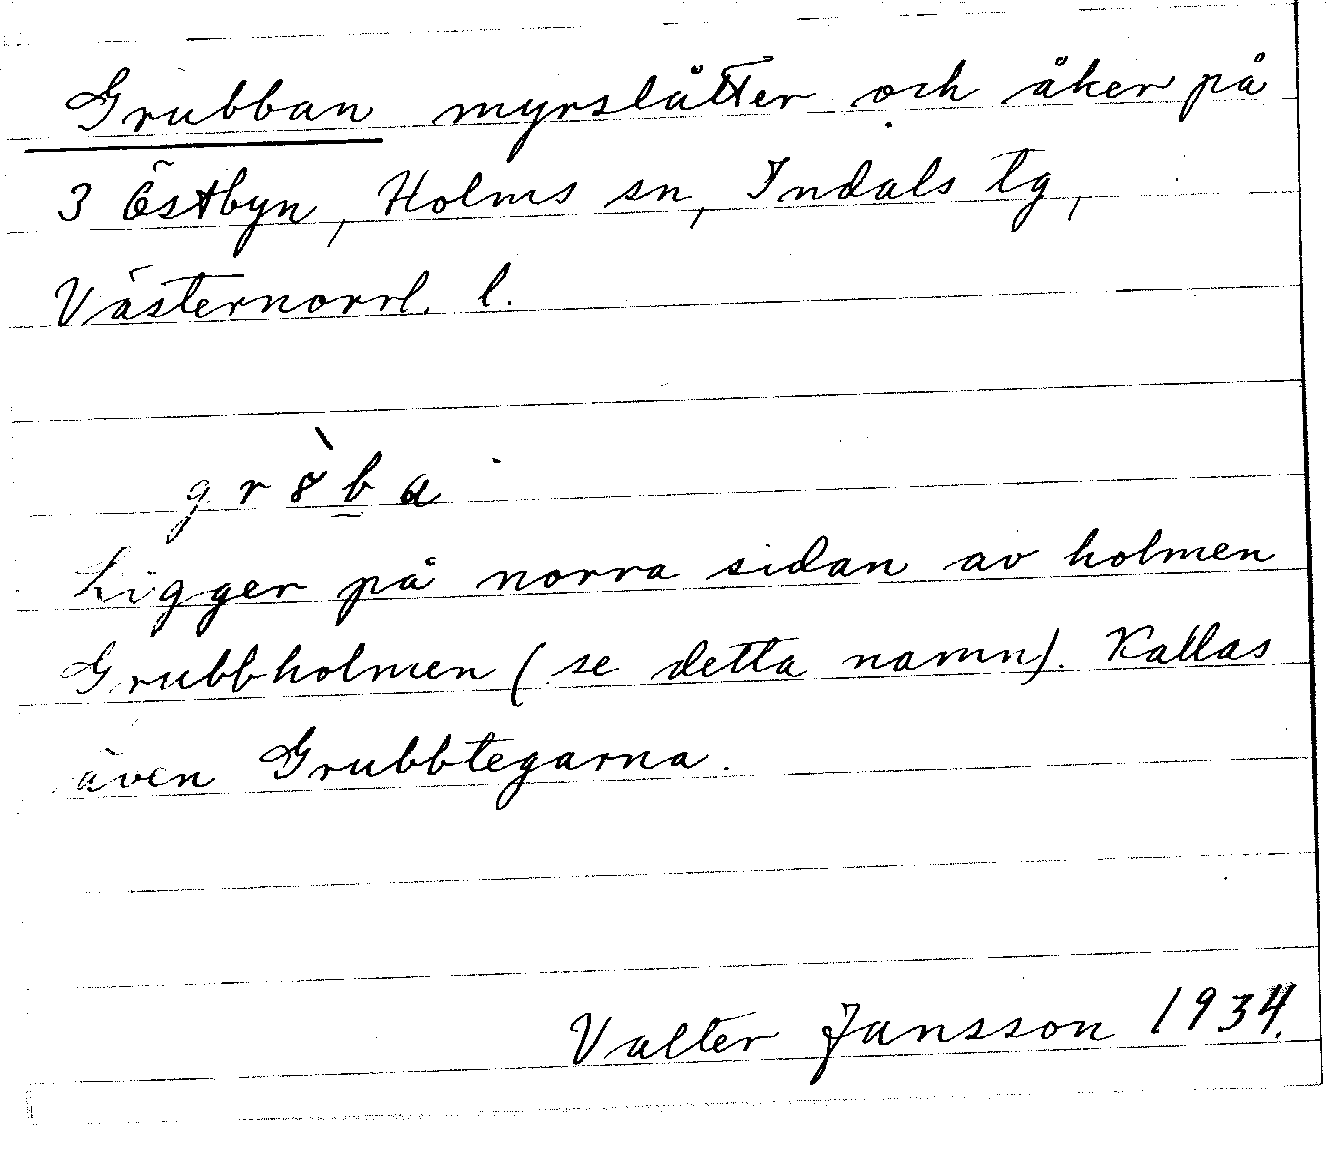 Grubban myrslåtter och åker på
3 Östbyn, Holms sn, Indals tg,
Västernorrl. l.
gr8̀b̲a
Ligger på norra sidan av holmen
Grubbholmen (se detta namn). Kallas
även Grubbtegarna.
Valter Jansson 1934.